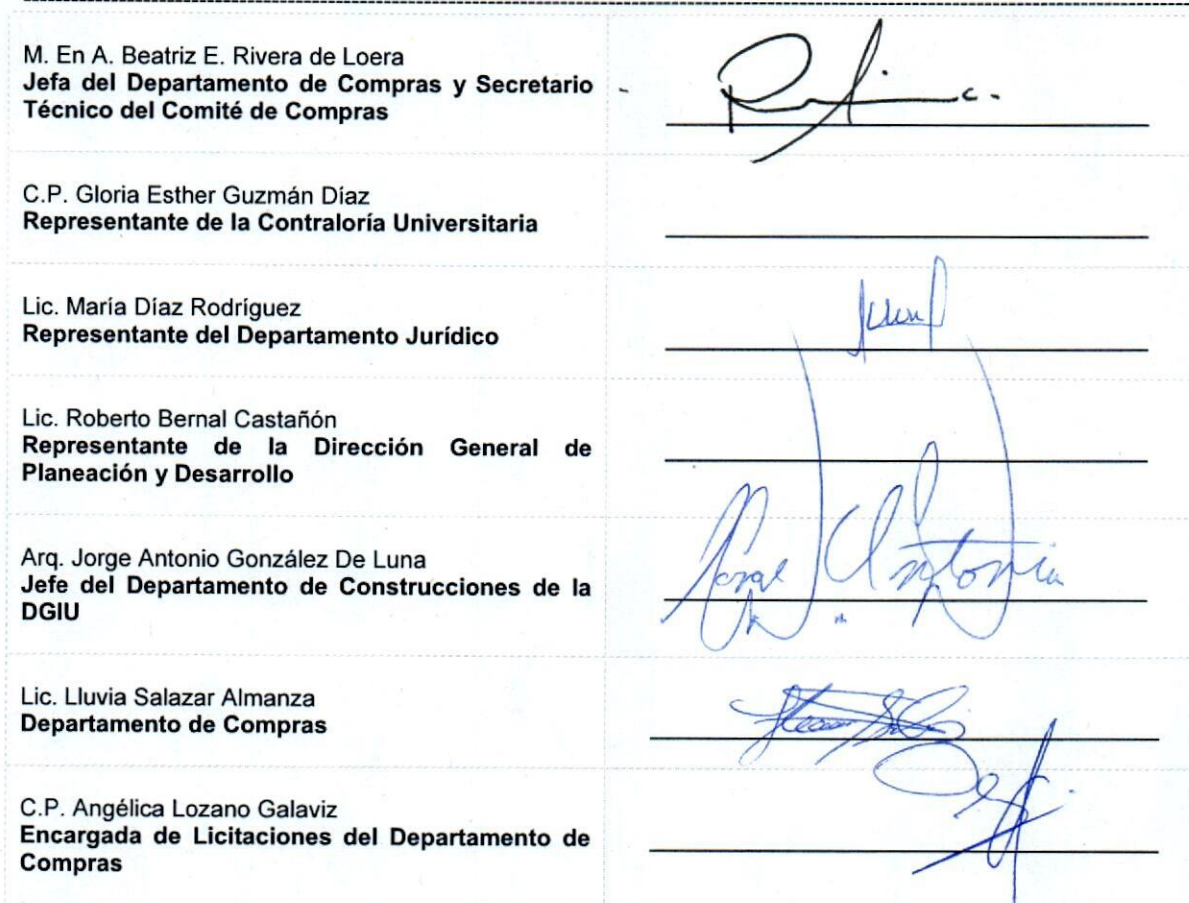 M. En A. Beatriz E. Rivera de Loera
Jefa del Departamento de Compras y Secretario
Técnico del Comité de Compras
C.P. Gloria Esther Guzmán Díaz
Representante de la Contraloría Universitaria
Lic. María Díaz Rodríguez
Representante del Departamento Jurídico
Lic. Roberto Bernal Castañón
Representante de la Dirección General de
Planeación y Desarrollo
Arq. Jorge Antonio González De Luna
Jefe del Departamento de Construcciones de la
DGIU
Jorge Antonio
Lic. Lluvia Salazar Almanza
Departamento de Compras
C.P. Angélica Lozano Galaviz
Encargada de Licitaciones del Departamento de
Compras